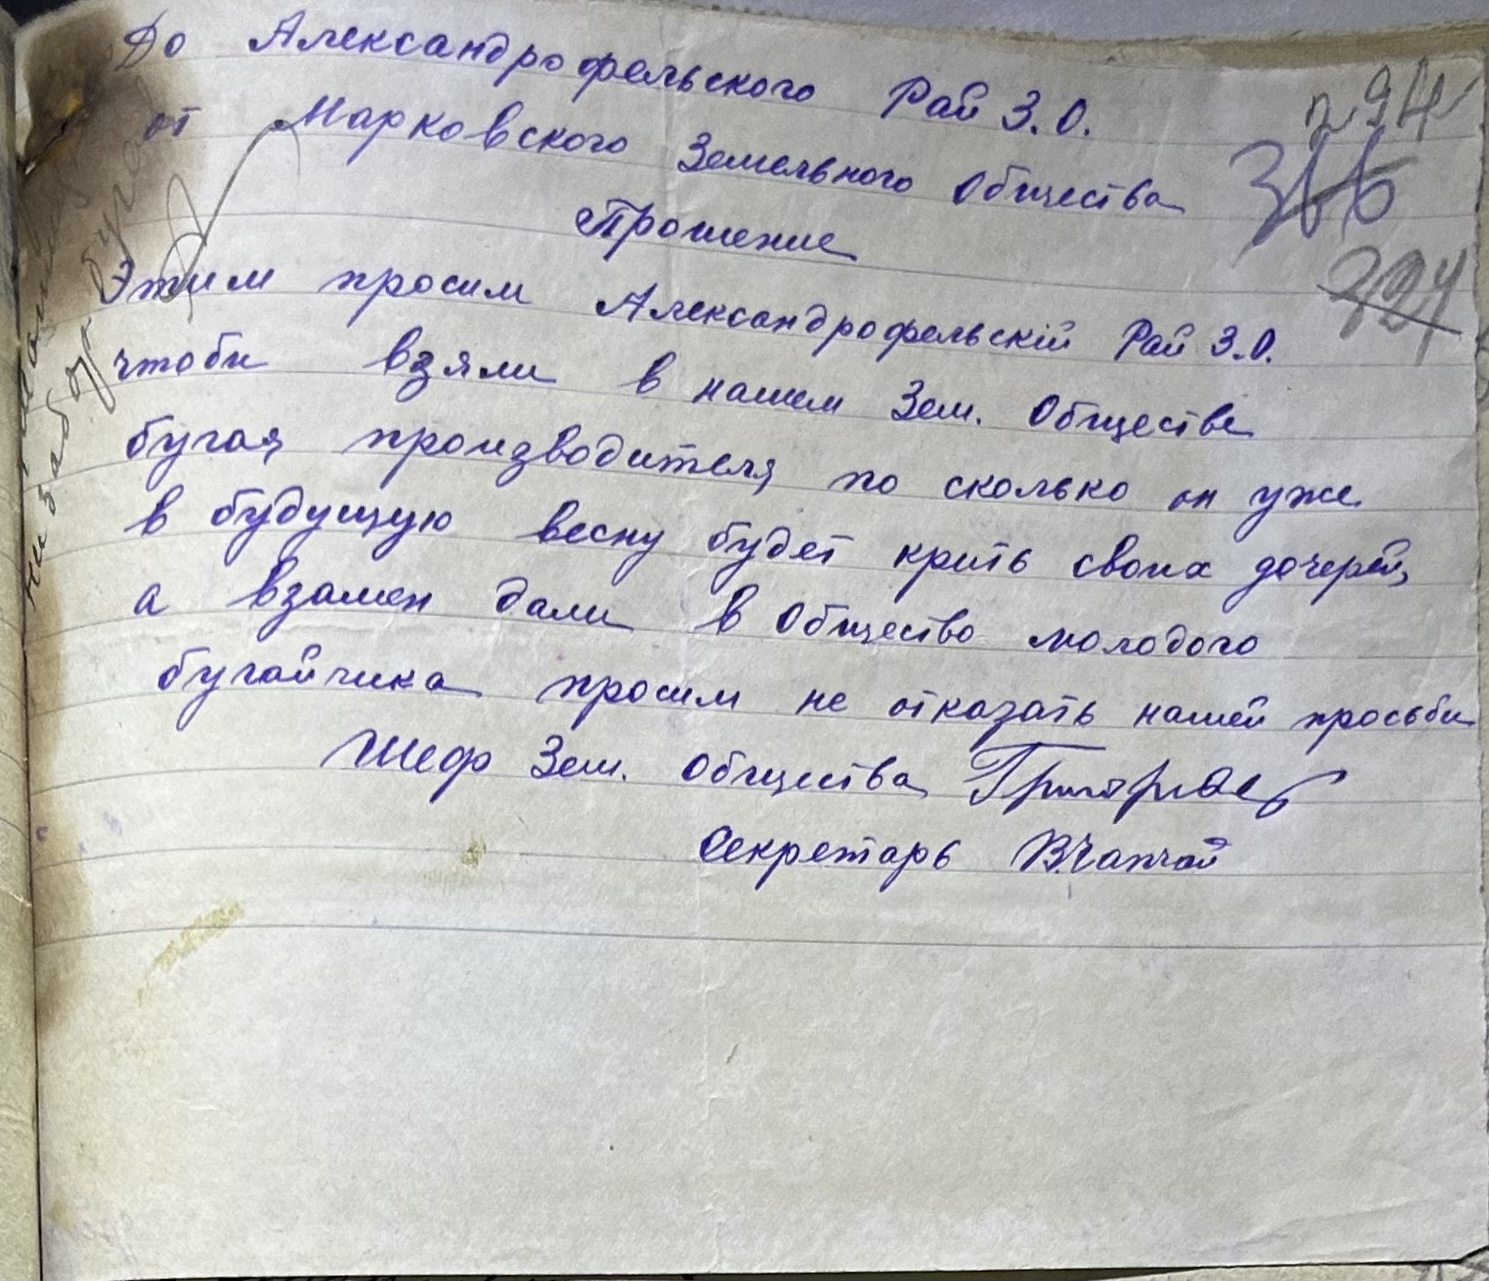 До Александрофельского Рай З.О.
от Марковского Земельного Общества
Прошение
Этим просим Александрофельскій Рай З.О.
чтоби взяли в нашем Зем. Обществе
бугая производителя по сколько он уже
в будущую весну будет крить своих дочерей,
а взамен дали в Общество молодого
бугайчика просим не отказать нашей просьби
Шеф Зем. Общества
Секретарь В.Чапчай
294
366
321